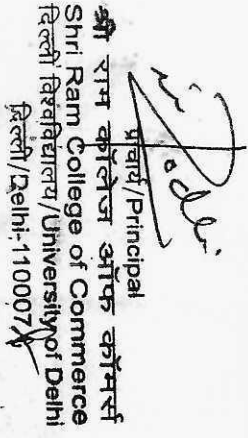 प्राचार्य/Principal
श्री राम कॉलेज ऑफ कॉमर्स
Shri Ram College of Commerce
दिल्ली विश्वविद्यालय/University of Delhi
दिल्ली/Delhi-110007